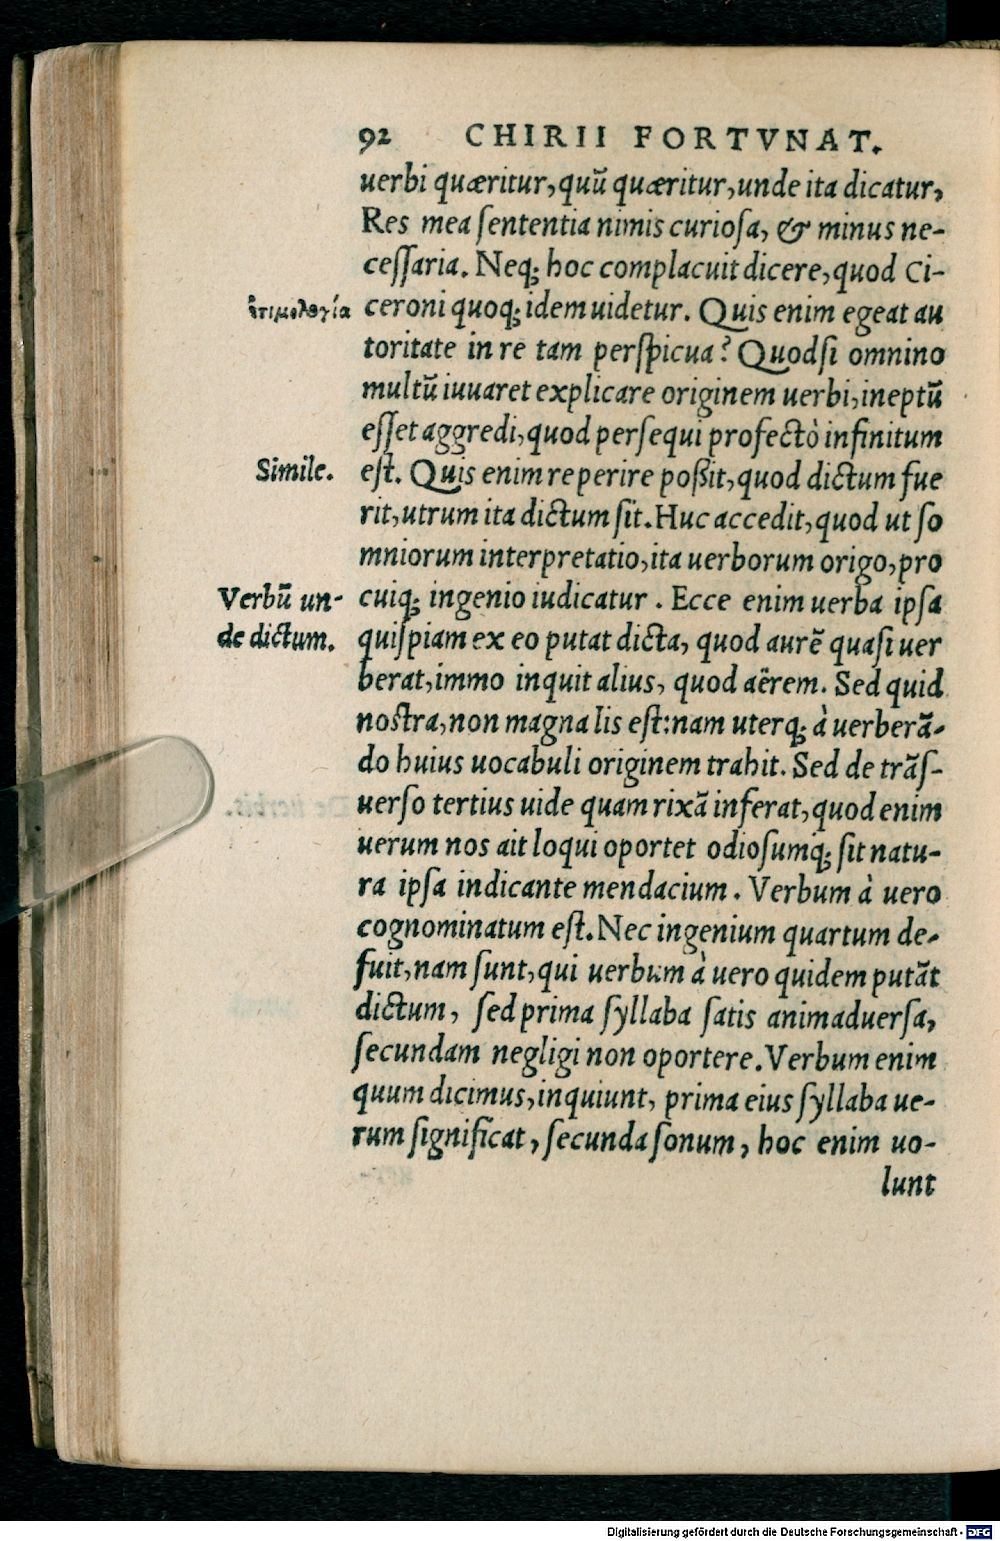 92 CHIRII FORTVNAT.
uerbi quæritur, quũ quæritur, unde ita dicatur,
Res mea ſententia nimis curioſa, & minus ne-
ceſſaria. Neq; hoc complacuit dicere, quod Ci-
ἐτιμολογία
ceroni quoq; idem uidetur. Quis enim egeat au
toritate in re tam perſpicua? Quodſi omnino
multũ iuuaret explicare originem uerbi, ineptũ
eſſet aggredi, quod perſequi profectò infinitum
Simile.
eſt. Quis enim reperire poßit, quod dictum fue
rit, utrum ita dictum ſit. Huc accedit, quod ut ſo
mniorum interpretatio, ita uerborum origo, pro
Verbũ un-
cuiq; ingenio iudicatur. Ecce enim uerba ipſa
de dictum.
quiſpiam ex eo putat dicta, quod aurẽ quaſi uer
berat, immo inquit alius, quod aërem. Sed quid
noſtra, non magna lis eſt: nam uterq; à uerberã-
do huius uocabuli originem trahit. Sed de trãſ-
uerſo tertius uide quam rixã inferat, quod enim
uerum nos ait loqui oportet odioſumq; ſit natu-
ra ipſa indicante mendacium. Verbum à uero
cognominatum eſt. Nec ingenium quartum de-
fuit, nam ſunt, qui uerbum à uero quidem putãt
dictum, ſed prima ſyllaba ſatis animaduerſa,
ſecundam negligi non oportere. Verbum enim
quum dicimus, inquiunt, prima eius ſyllaba ue-
rum ſignificat, ſecunda ſonum, hoc enim uo-
lunt
Digitalisierung gefördert durch die Deutsche Forschungsgemeinschaft - DFG